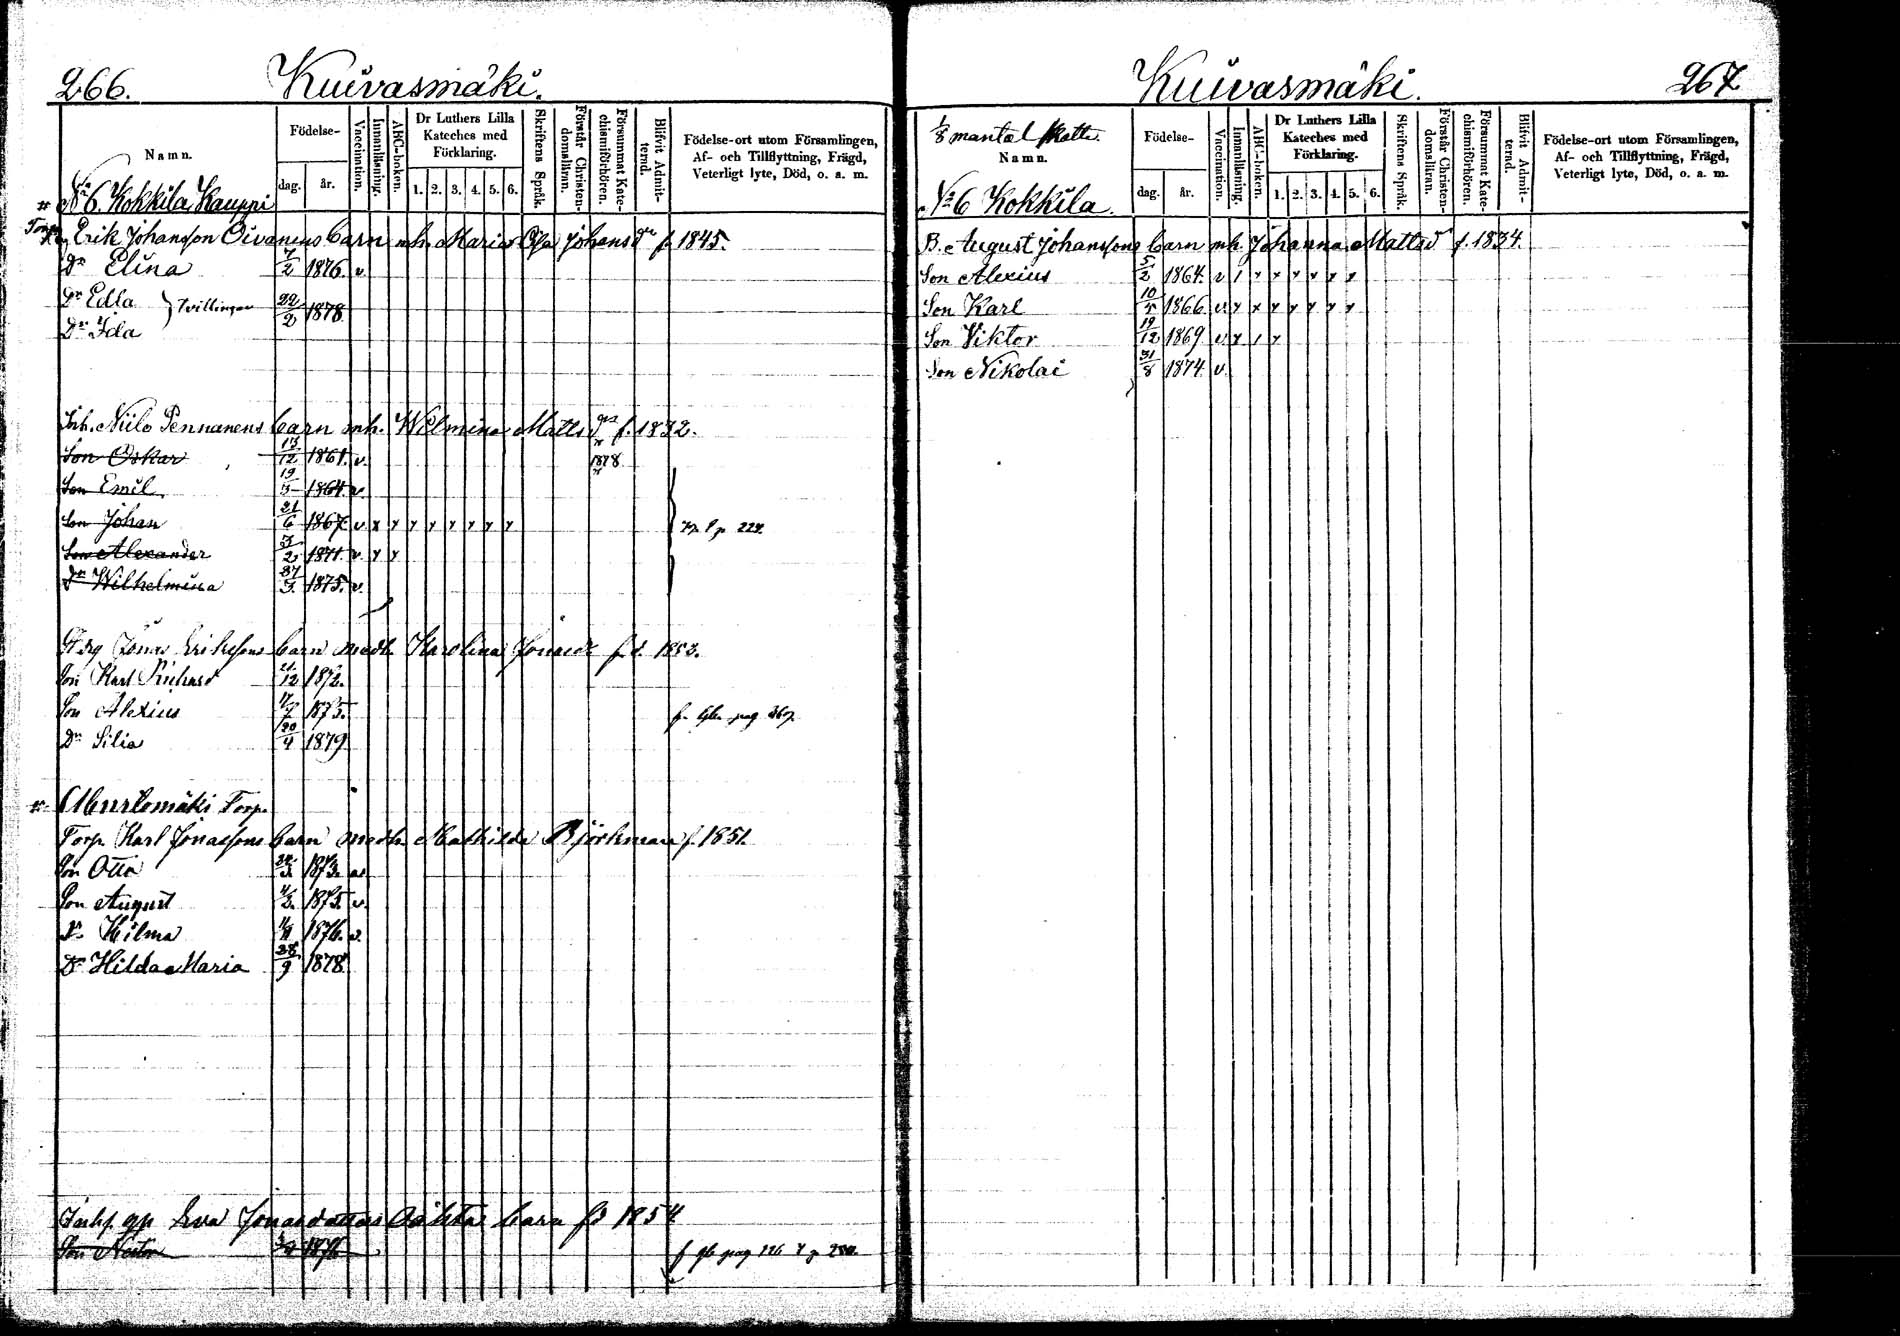 266. Kuivasmäki.
Namn. Födelse- dag. år. Vaccination. Innanläsning. ABC-boken. Dr Luthers Lilla Kateches med Förklaring. 1. 2. 3. 4. 5. 6. Skriftens Språk. Förstår Christendomsläran. Försummat Katechismiförhören. Blifvit Admitternd. Födelse-ort utom Församlingen, Af- och Tillflyttning, Frägd, Veterligt lyte, Död, o. a. m.
№ 6. Kokkila Kauppi
Erik Johansson Oivanens barn mh. Maria Johansdr f. 1845.
Dr Elina 7/2 1876. v
Dr Edla } Tvillingar 22/2 1878
Dr Ida
Inh. Niilo Pennanens barn mh. Wilmina Mattsdr f. 1832.
Son Oskar 13/12 1861. v. 1878
Son Emil 19/3 1864. v.
Son Johan 21/6 1867. v x y y y y y y y
Son Alexander 3/2 1871. v. y y
Dr Wilhelmina 1875. v.
Jonas Erikssons barn medh. Karolina Jonasdr fd. 1853.
Son Karl Richard 21/12 1872.
Son Alexius 17/7 1875. f. pag 267.
Dr Silia 20/4 1879
Murtomäki Torp.
Torp. Karl Jonassons barn medh. Mathilda Björkman f. 1851.
Son Otto 1873. v
Son August 1875. v.
Dr Hilma 1876. v.
Dr Hilda Maria 28/9 1878
Eva Jonasdotters barn fd 1854
Son Nestor 1876 pag
Kuivasmäki. 267
1/8 mantal Skatte.
Namn. Födelse- dag. år. Vaccination. Innanläsning. ABC-boken. Dr Luthers Lilla Kateches med Förklaring. 1. 2. 3. 4. 5. 6. Skriftens Språk. Förstår Christendomsläran. Försummat Katechismiförhören. Blifvit Admitternd. Födelse-ort utom Församlingen, Af- och Tillflyttning, Frägd, Veterligt lyte, Död, o. a. m.
№ 6 Kokkila.
B. August Johanssons barn mh. Johanna Mattsdr f. 1834.
Son Alexius 5/2 1864. v 1 y y y y y y
Son Karl 10/5 1866 v. y x y y y y y
Son Viktor 19/12 1869. v y 1 y
Son Nikolai 31/8 1874. v.